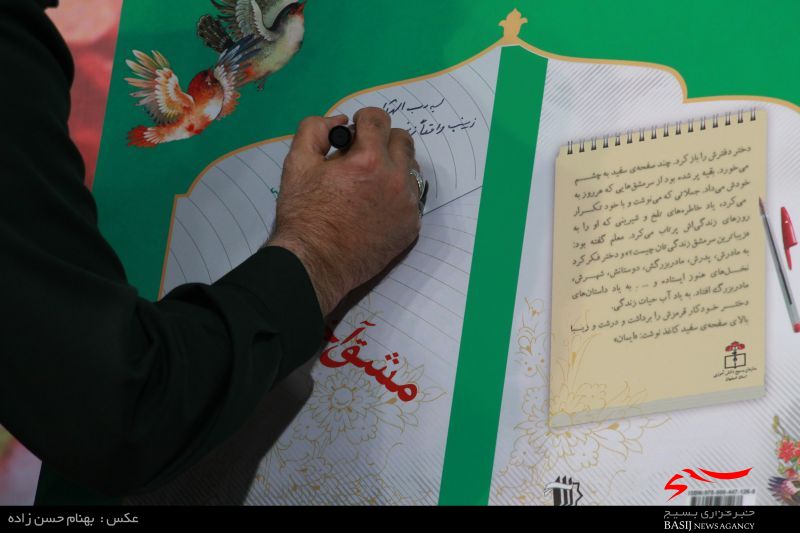 دختر دفترش را باز کرد. چند صفحه‌ی سفید به چشم
می‌خورد. بقیه پر شده بود از سرمشق‌هایی که هر روز به
خودش می‌داد. جملاتی که می‌نوشت و با خود تکرار
می‌کرد، یاد خاطره‌های تلخ و شیرینی که او را به
روزهای زندگی‌اش پرتاب می‌کرد. معلم گفته بود:
«زیباترین سرمشق زندگی‌تان چیست؟» و دختر فکر کرد
به مادرش، پدرش، مادربزرگش، دوستانش، شهرش،
نخل‌های هنوز ایستاده و ... . به یاد داستان‌های
مادربزرگ افتاد. به یاد آب حیات زندگی.
دختر خودکار قرمزش را برداشت و درشت و زیبا
بالای صفحه‌ی سفید کاغذ نوشت: «ایمان»
سازمان بسیج دانش آموزی
استان اصفهان
مشق
عکس : بهنام حسن زاده
بسیج
خبرگزاری بسیج
BASIJ NEWS AGENCY